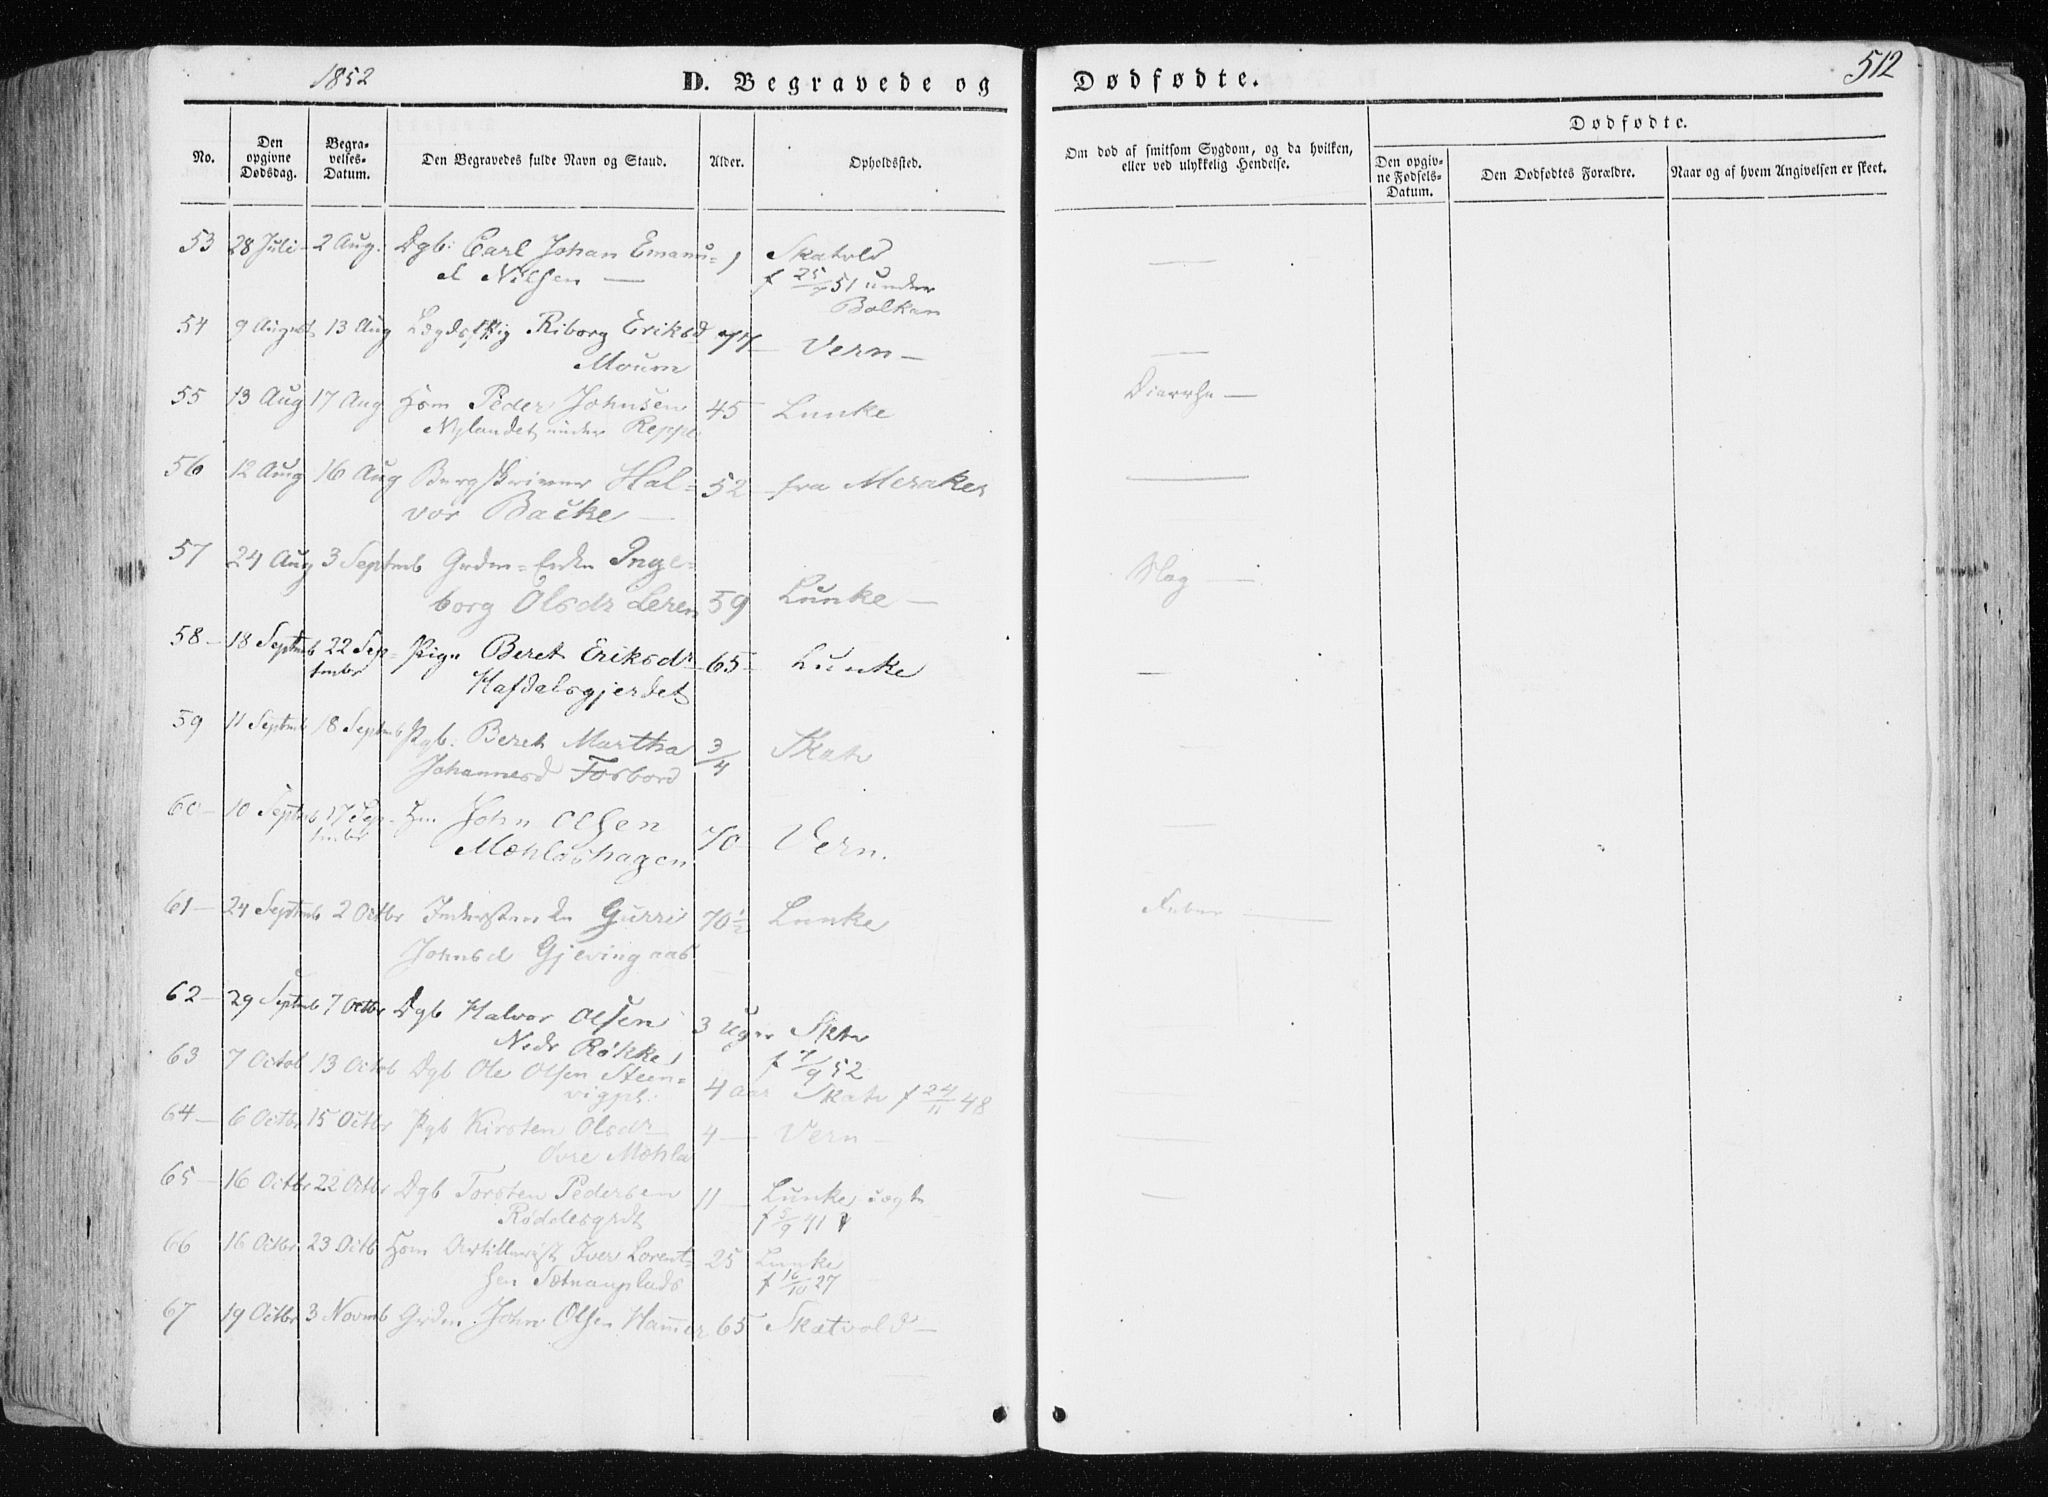 1852
D. Begravede og Dødfødte.
512
No.
Den opgivne Dødsdag.
Begravelses-Datum.
Den Begravedes fulde Navn og Stand.
Alder.
Opholdssted.
Om død af smitsom Sygdom, og da hvilken, eller ved ulykkelig Hendelse.
Dødfødte.
Den opgivne Fødsels-Datum.
Den Dødfødtes Forældre.
Naar og af hvem Angivelsen er skeet.
53 28 Juli 2 Aug. Dgb: Carl Johan Emanu= 1 Skatvold
el Nilsen — f 25/7 51 under
Balkan
54 9 August 13 Aug Lægdspig Riborg Eriksd 77 Vern —
Moum
55 13 Aug 17 Aug Hsm Peder Johnsen 45 Lunke Diarrhe —
Nylandet under Reppe
56 12 Aug 16 Aug Bergskriver Hal= 52 fra Meraker
vor Backe —
57 24 Aug 3 Septmb Grdm=Enke Inge=
borg Olsdr Leren 59 Lunke — Slag —
58 — 18 Septmb 22 Sep= Pige Beret Eriksdr 65 Lunke
tmbr Hafdalsgjerdet
59 11 Septmb 18 Septmb Pgb: Beret Martha 3/4 Skatv
Johannesd Forbord
60 — 10 Septmb 17 Sep= Hm John Olsen 70 Vern.
tmbr Mæhlashagen
61 — 24 Septmb 2 Octbr Inderst Enke Gurri 70 1/2 Lunke Feber —
Johnsd Gjevingaas
62 — 29 Septmb 7 Octbr Dgb Halvor Olsen 3 Uger Sktv
Nedr Røkke f 7/9 52
63 7 Octob 13 Octob Dgb Ole Olsen Steen= 4 aar Skatv f 24/11 48
vigpl.
64 — 6 Octbr 15 Octbr Pgb Kirsten Olsdr 4 — Vern —
Øvre Mæhla
65 — 16 Octbr 22 Octbr Dgb Torsten Pedersen 11 — Lunke sogn
Røddesgrdt f 5/9 41
66 16 Octbr 23 Octb Hsm Artillerist Iver Lorent= 25 Lunke
sen Sætnanplads f 16/10 27
67 19 Octbr 3 Novmb Grdm. John Olsen Hammer 65 Skatvold —